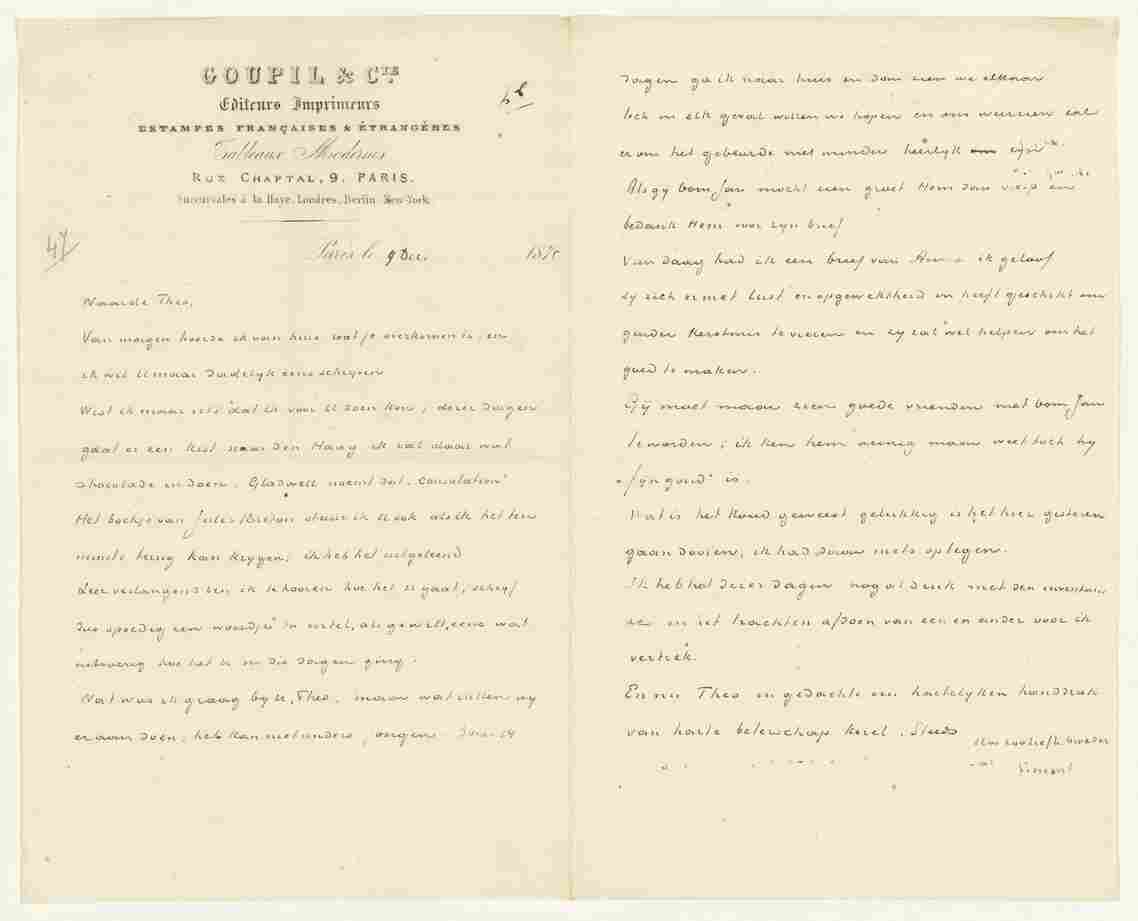 GOUPIL & CIE
Editeurs Imprimeurs
ESTAMPES FRANÇAISES & ÉTRANGÈRES
Tableaux Modernes
RUE CHAPTAL, 9. PARIS.
Succursales à la Haye, Londres, Berlin, New-York
47
Paris le 9 Dec. 187
Waarde Theo,
Van morgen hoorde ik van huis wat je overkomen is, en
ik wil U maar dadelijk eens schrijven
Wist ik maar iets dat ik voor U doen kon, dezer dagen
gaat er een kist naar den Haag ik zal daar wat
chocolade in doen. Gladwell noemt dat "consolation"
Het boekje van Jules Breton stuur ik U ook als ik het ten
minste terug kan krijgen; ik heb het uitgeleend
Zeer verlangend ben ik te hooren hoe het U gaat, schrijf
dus spoedig een woordje en vertel, als ge wilt, eens wat
hoe het U in die dagen ging.
Wat was ik graag bij U, Theo, maar wat zullen wij
eraan doen; het kan niet anders,
dagen ga ik naar huis en dan zien we elkaar
toch in elk geval willen we hopen en ons weerzien zal
er om het gebeurde niet minder heerlijk om zijn.
Als gij oom Jan mocht zien groet Hem dan
bedank Hem voor zijn brief
Van daag had ik een brief van Anna ik geloof
zij zich er met lust en opgewektheid in heeft geschikt om
ginder Kerstmis te vieren en zij zal wel helpen om het
goed te maken.
Gij moet maar zien goede vrienden met oom Jan
te worden; ik ken hem weinig maar weet toch hij
"fijn goud" is.
Wat is het koud geweest gelukkig is het hier gisteren
gaan dooien; ik had daar niets op tegen.
Ik heb het dezer dagen nogal druk met den inventaris
en het trachten afdoen van een en ander voor ik
vertrek.
En nu Theo in gedachte een hartelijken handdruk
van harte beterschap kerel. Steeds
Uw liefh. broeder
Vincent